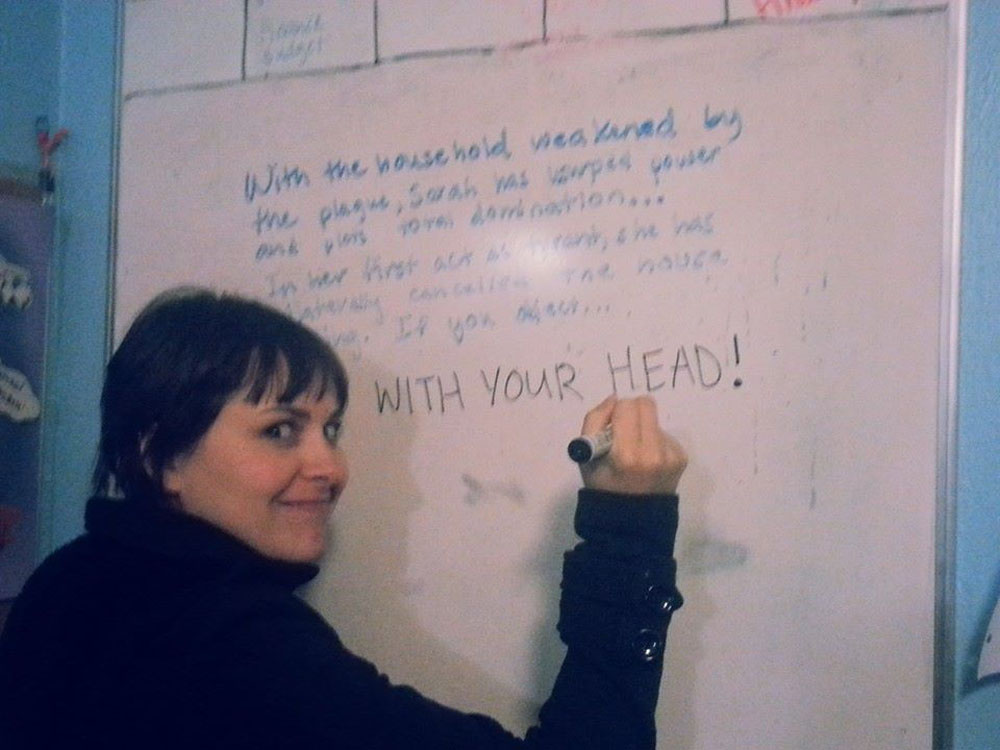 With the household weakened by
the plague, Sarah has usurped power
and plots total domination...
In her first act as tyrant, she has
cancelled the house
. If you object...
WITH YOUR HEAD!